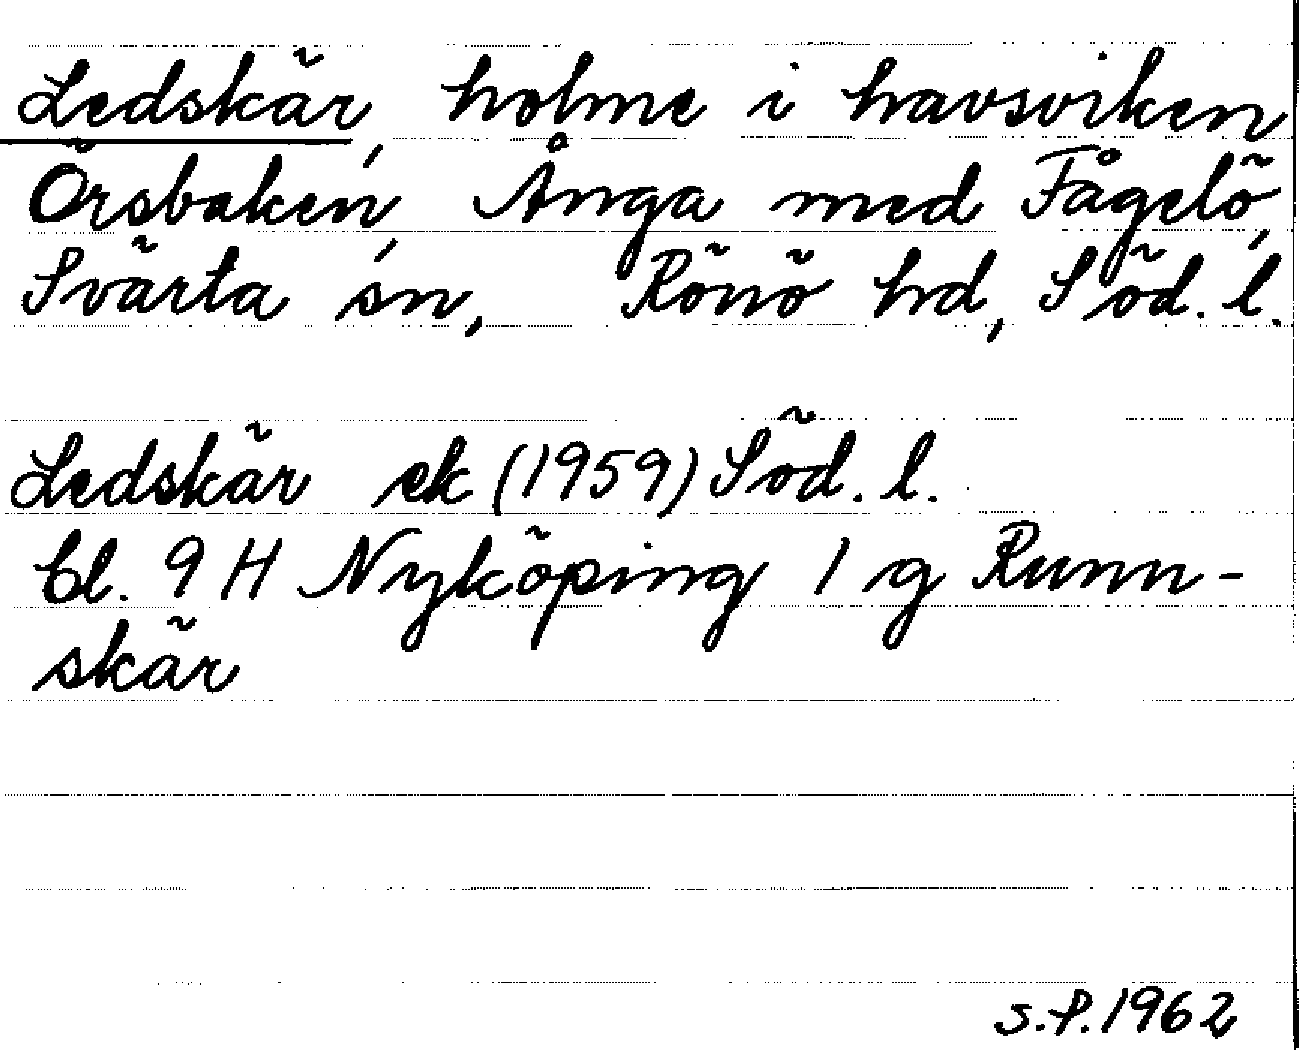 Ledskär, holme i havsviken
Örsbaken, Ånga med Fågelö,
Svärta sn, Rönö hd, Söd. l.
Ledskär ek (1959) Söd. l.
bl. 9 H Nyköping 1 g Runn-
skär
S.P. 1962